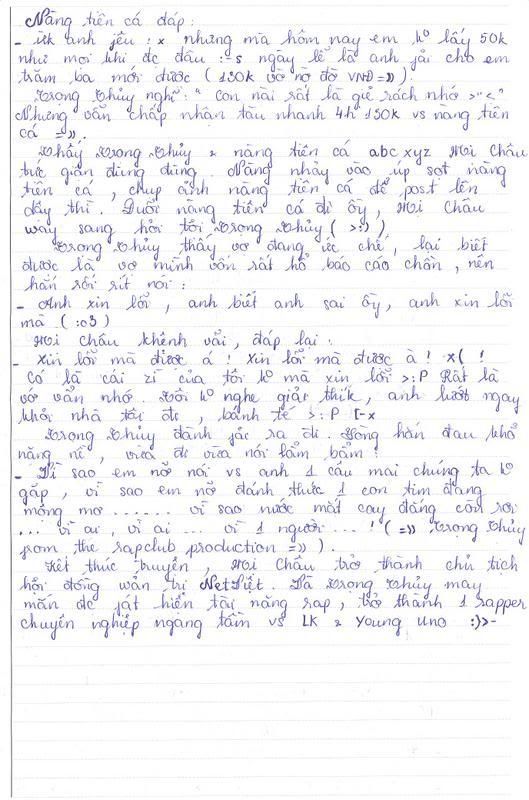 Nàng tiên cá đáp:
- Ừk anh jêu :x nhưng mà hôm nay em k⁰ lấy 50k
như mọi khi đc đâu :-s ngày lễ là anh jải cho em
trăm ba mới được (130k vờ nờ đờ VNĐ =)) ).
Trọng Thủy nghĩ: " Con nài rất là giẻ rách nhớ >"<"
Nhưng vẫn chấp nhận tàu nhanh 4h 130k vs nàng tiên
cá =)).
Thấy Trọng Thủy & nàng tiên cá abc xyz Mị Châu
tức giận đùng đùng. Nàng nhảy vào úp sọt nàng
tiên cá, chụp ảnh nàng tiên cá để post lên
dây thì. Đuổi nàng tiên cá đi ồy, Mị Châu
way sang hỏi tội Trọng Thủy ( >:) ).
Trọng Thủy thấy vợ đang ức chế, lại biết
được là vợ mình vốn rất hổ báo cáo chồn, nên
hắn rối rít nói:
- Anh xin lỗi, anh biết anh sai ồy, anh xin lỗi
mà ( :o3 )
Mị Châu khênh vãi, đáp lại:
- Xin lỗi mà được á! Xin lỗi mà được à! x( !
Có là cái zì của tôi k⁰ mà xin lỗi >:P Rất là
vớ vẩn nhớ. Tôi k⁰ nghe giải thík, anh lướt ngay
khỏi nhà tôi đi, bánh tẻ >:P [-x
Trọng Thủy đành jải ra đi. Lòng hắn đau khổ
năng nề, vừa đi vừa nói lẩm bẩm:
- Vì sao em nỡ nói vs anh 1 câu mai chúng ta k⁰
gặp, vì sao em nỡ đánh thức 1 con tim đang
mộng mơ ...... vì sao nước mắt cay đắng còn rơi
... vì ai, vì ai ... vì 1 người ... ! ( =)) Trọng Thủy
from the rapclub production =)) ).
Kết thúc truyện, Mị Châu trở thành chủ tịch
hội đồng wản trị NetViệt. Và Trọng Thủy may
mắn đc fát hiện tài năng rap, trở thành 1 rapper
chuyên nghiệp ngang tầm vs LK & Young Uno :)>-